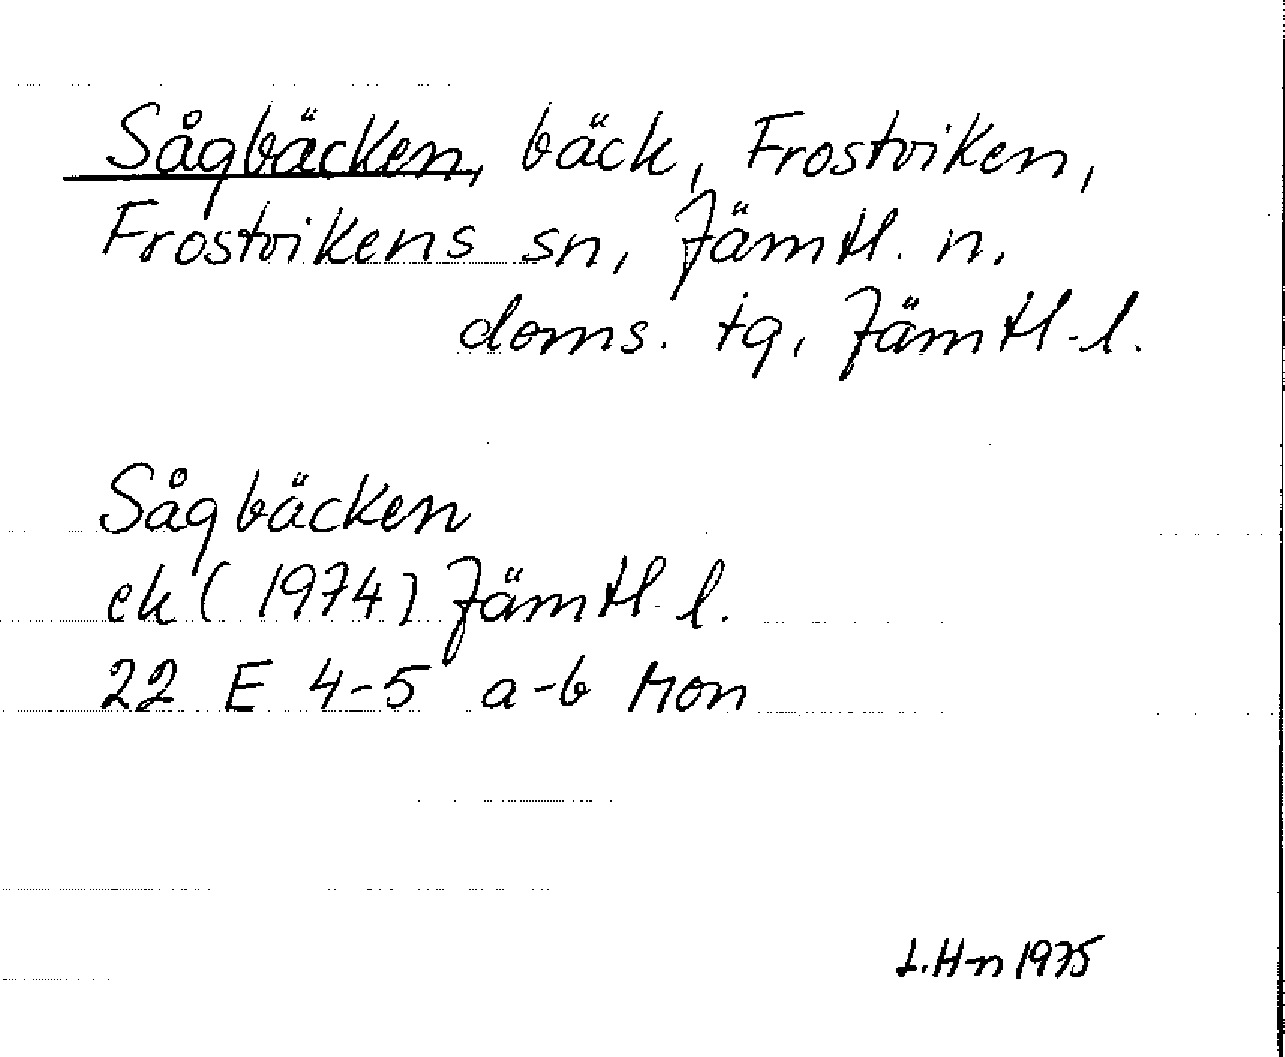 Sågbäcken, bäck, Frostviken,
Frostvikens sn, Jämtl. n.
doms. tg, Jämtl. l.
Sågbäcken
ek (1974) Jämtl. l.
22 E 4-5 a-b Mon
L.H-n 1975